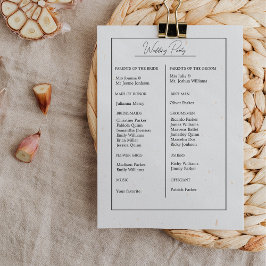 Wedding Party
PARENTS OF THE BRIDE
Mrs Joanna &
Mr. Jamie Jonhson
MAID OF HONOR
Julianna Marcy
BRIDESMAIDS
Christine Parker
Patricia Quinn
Samantha
Emily Williams
Erica Miller
Jessica Quinn
FLOWER GIRLS
Madison Parker
Emily Williams
MUSIC
Your favorite
PARENTS OF THE GROOM
Mrs Julia &
Mr. Joshua Williams
BEST MAN
Oliver Parker
GROOMSMEN
Ricardo Parker
James Quinn
Marcelo Ballet
Jonathan Williams
Mamadu Doe
Ricky Jonhson
Ricky Williams
Jimmy Parker
OFFICIANT
Patrick Parker